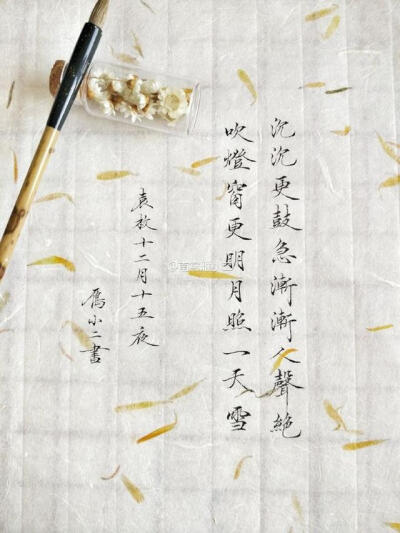 沉沉更鼓急漸漸人聲絶
吹燈窗更明月照一天雪
袁枚十二月十五夜
雁小二書